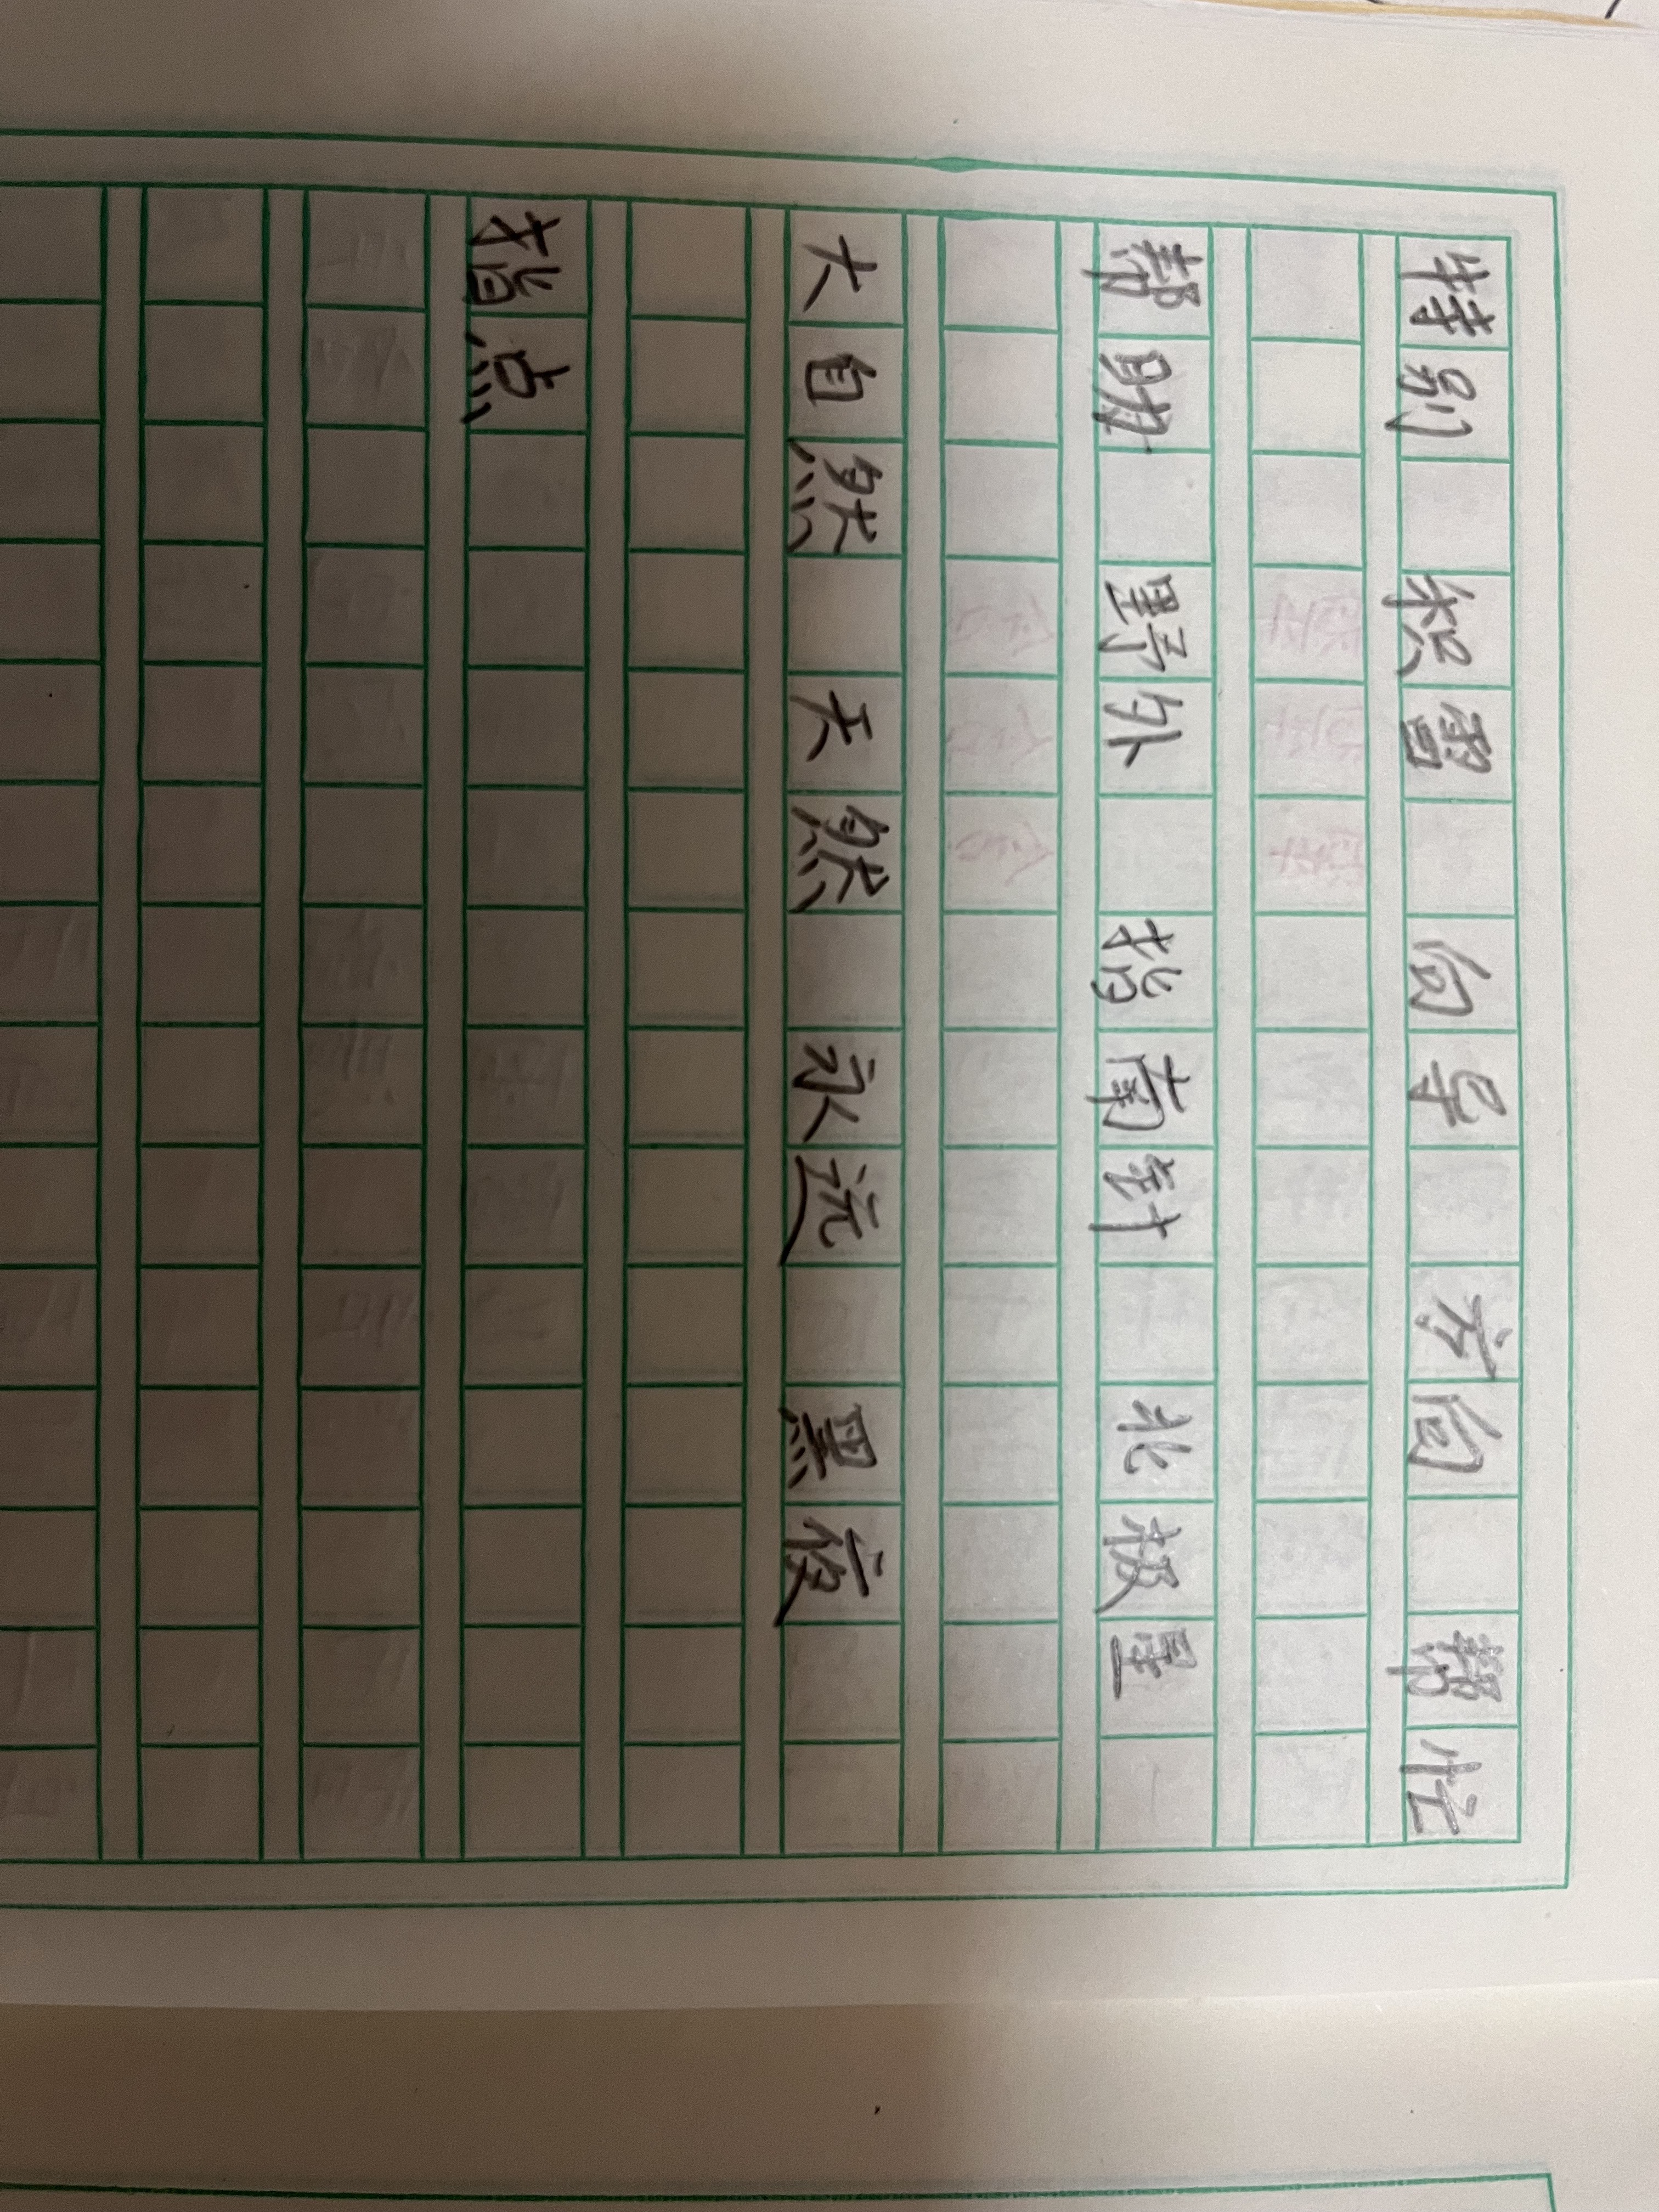 特别 积雪 向导 方向 帮忙
帮助 野外 指南针 北极星
大自然 天然 永远 黑夜
指点